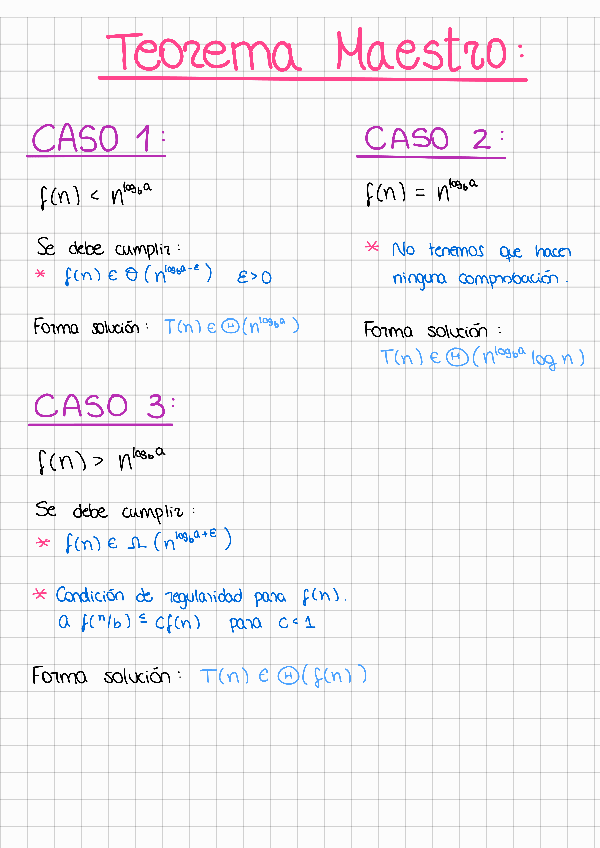 Teorema Maestro:
CASO 1:
f(n) < n^log_b a
Se debe cumplir:
* f(n) ∈ Θ(n^log_b a-ε) ε>0
Forma solución: T(n) ∈ Θ(n^log_b a)
CASO 2:
f(n) = n^log_b a
* No tenemos que hacer
ninguna comprobación.
Forma solución:
T(n) ∈ Θ(n^log_b a log n)
CASO 3:
f(n) > n^log_b a
Se debe cumplir:
* f(n) ∈ Ω(n^log_b a+ε)
* Condición de regularidad para f(n).
a f(n/b) ≤ cf(n) para c<1
Forma solución: T(n) ∈ Θ(f(n))